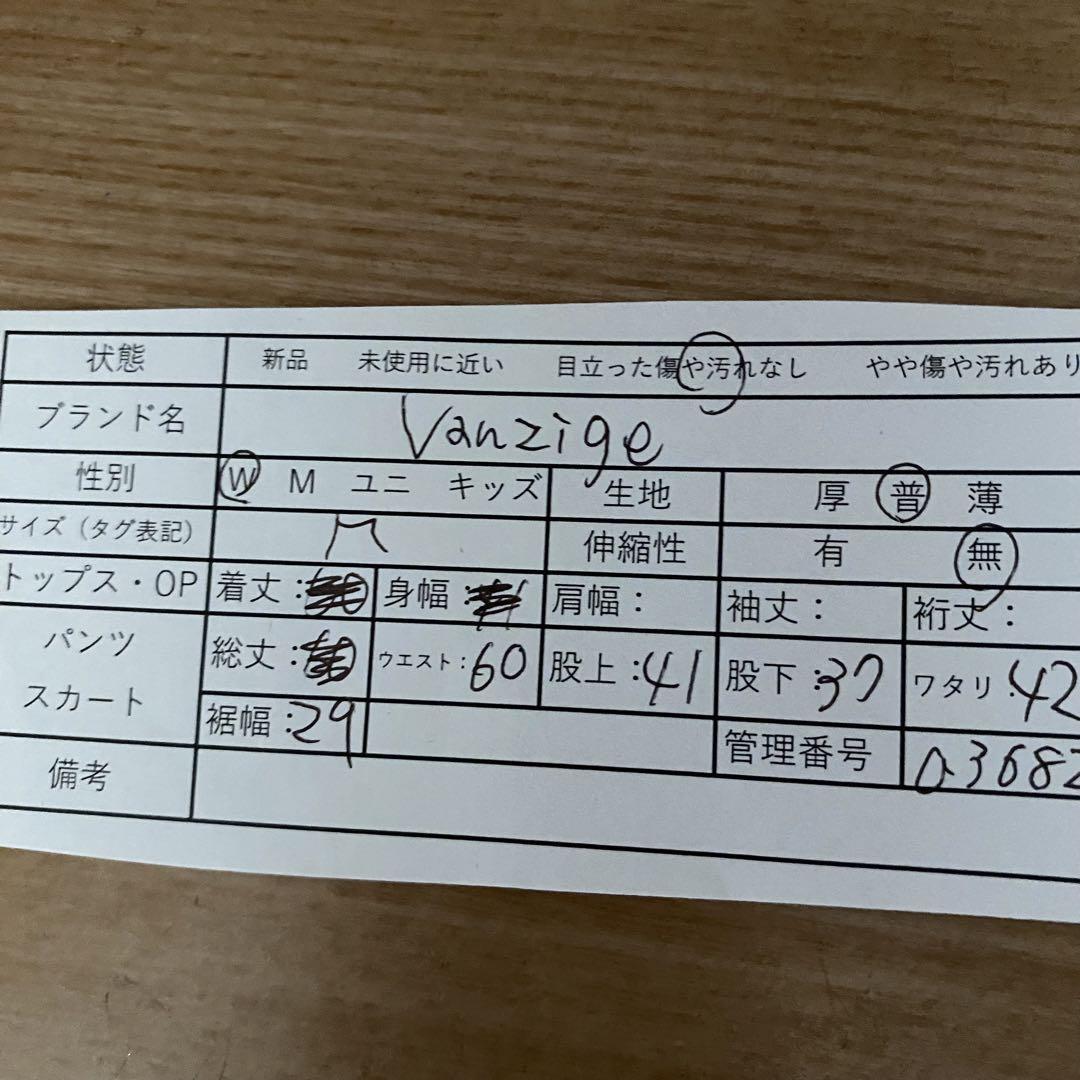 状態 新品 未使用に近い 目立った傷や汚れなし やや傷や汚れあり
ブランド名 Vanzige
性別 W M ユニ キッズ 生地 厚 普 薄
サイズ（タグ表記） M 伸縮性 有 無
トップス・OP 着丈： 身幅： 肩幅： 袖丈： 裄丈：
パンツ スカート 総丈： ウエスト：60 股上：41 股下：37 ワタリ：42
裾幅：29 管理番号 a3682
備考